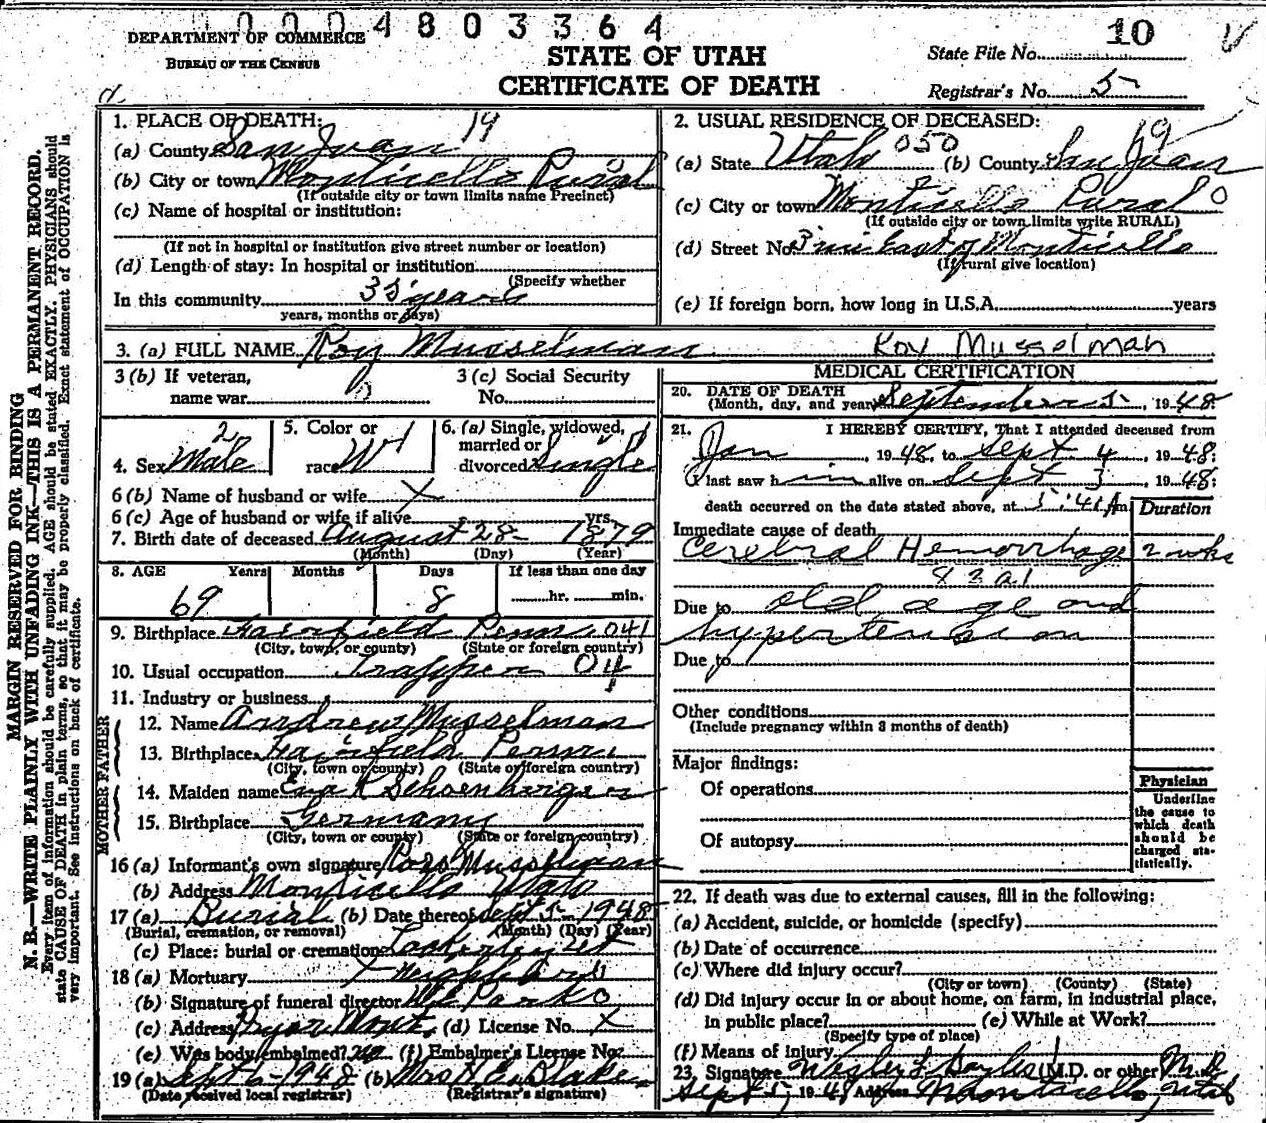 0004803364
DEPARTMENT OF COMMERCE
BUREAU OF THE CENSUS
STATE OF UTAH
CERTIFICATE OF DEATH
State File No. 10
Registrar's No. 5
MARGIN RESERVED FOR BINDING
N. B.—WRITE PLAINLY WITH UNFADING INK—THIS IS A PERMANENT RECORD.
Every item of information should be carefully supplied. AGE should be stated EXACTLY. PHYSICIANS should
state CAUSE OF DEATH in plain terms, so that it may be properly classified. Exact statement of OCCUPATION is
very important. See instructions on back of certificate.
1. PLACE OF DEATH: 19
(a) County San Juan
(b) City or town Monticello Rural
(If outside city or town limits name Precinct)
(c) Name of hospital or institution:
(If not in hospital or institution give street number or location)
(d) Length of stay: In hospital or institution
(Specify whether
In this community 35 years
years, months or days)
2. USUAL RESIDENCE OF DECEASED: 19
(a) State Utah 050 (b) County San Juan
(c) City or town Monticello Rural 0
(If outside city or town limits write RURAL)
(d) Street No. 3 mi East of Monticello
(If rural give location)
(e) If foreign born, how long in U.S.A. years
3. (a) FULL NAME Roy Musselman Roy Musselman
3 (b) If veteran,
name war
3 (c) Social Security
No.
4. Sex Male 2
5. Color or
race W 1
6. (a) Single, widowed,
married or
divorced Single 1
6 (b) Name of husband or wife X
6 (c) Age of husband or wife if alive yrs.
7. Birth date of deceased August 28 1879
(Month) (Day) (Year)
8. AGE Years Months Days If less than one day
69 8 hr. min.
9. Birthplace Fairfield Penn. 041
(City, town, or county) (State or foreign country)
10. Usual occupation Trapper 04
11. Industry or business
FATHER
12. Name Andrew Musselman
13. Birthplace Fairfield Penn.
(City, town or county) (State or foreign country)
MOTHER
14. Maiden name Eva K Schoenberger
15. Birthplace Germany
(City, town or county) (State or foreign country)
16 (a) Informant's own signature Ross Musselman
(b) Address Monticello Utah
17 (a) Burial (b) Date thereof Sept 5 1948
(Burial, cremation, or removal) (Month) (Day) (Year)
(c) Place: burial or cremation
18 (a) Mortuary X
(b) Signature of funeral director
(c) Address Mont. (d) License No. X
(e) Was body embalmed? no (f) Embalmer's License No.
19 (a) Sept 6-1948 (b) Mrs H E Blake
(Date received local registrar) (Registrar's signature)
MEDICAL CERTIFICATION
20. DATE OF DEATH
(Month, day, and year) September 5, 1948.
21. I HEREBY CERTIFY, That I attended deceased from
Jan, 1948, to Sept 4, 1948.
I last saw him alive on Sept 3, 1948;
death occurred on the date stated above, at 5:41 A m.
Duration
Immediate cause of death
Cerebral Hemorrhage 2 wks
83a1
Due to old age and
hypertension
Due to
Other conditions
(Include pregnancy within 3 months of death)
Major findings:
Of operations
Of autopsy
Physician
Underline
the cause to
which death
should be
charged sta-
tistically.
22. If death was due to external causes, fill in the following:
(a) Accident, suicide, or homicide (specify)
(b) Date of occurrence
(c) Where did injury occur?
(City or town) (County) (State)
(d) Did injury occur in or about home, on farm, in industrial place,
in public place? (e) While at Work?
(Specify type of place)
(f) Means of injury
23. Signature Wesley L Bayles (M.D. or other) M.D.
Sept 5, 1948 Address Monticello, Utah